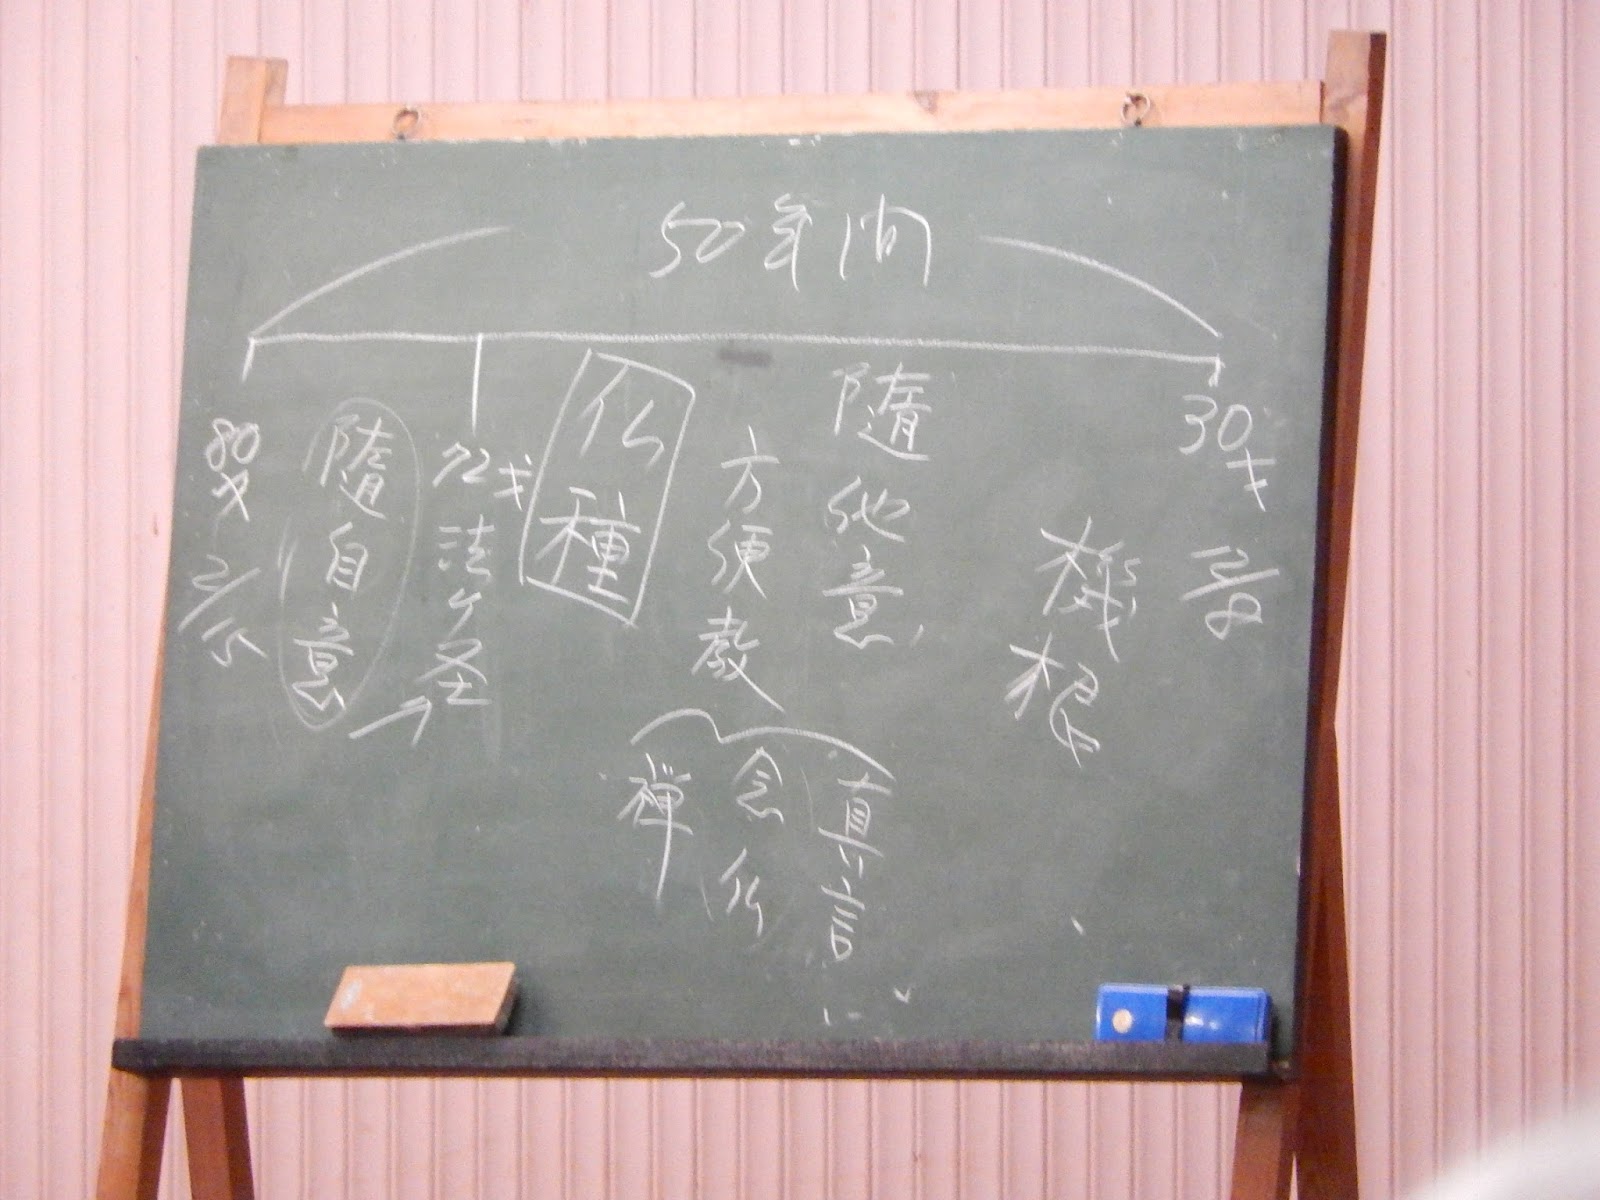 50年間
30才
12/8
機根
隨他意
方便教
真言
念仏
禅
仏種
72才
法ケ圣
隨自意
80才
2/15